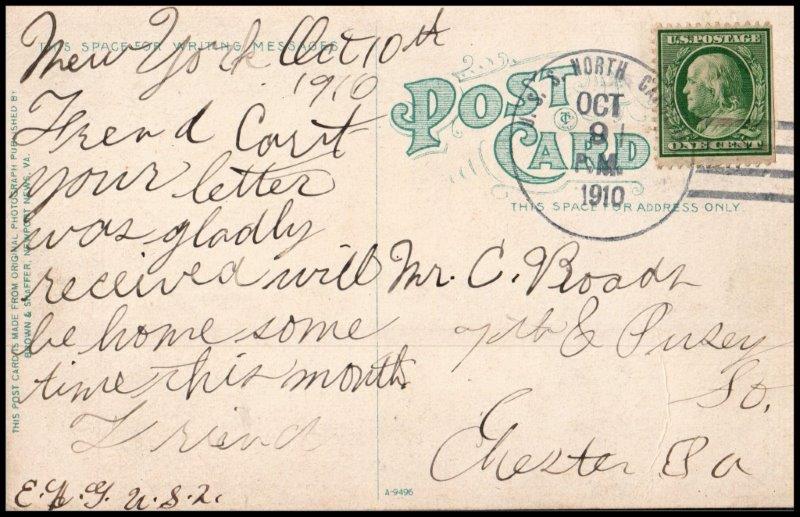 THIS SPACE FOR WRITING MESSAGES
New York Oct 10th
1910
Frend Cort
your letter
was gladly
received will
be home some
time this month
Friend
E.H.G. U.S.
THIS POST CARD IS MADE FROM ORIGINAL PHOTOGRAPH PUBLISHED BY
BROWN & SHAFFER, NEWPORT NEWS, VA.
POST CARD
THIS SPACE FOR ADDRESS ONLY
U.S. POSTAGE
ONE CENT
U.S.S. NORTH
OCT
9
P.M.
1910
Mr. C. Roads
7th & Pusey
St.
Chester Pa
A-9496